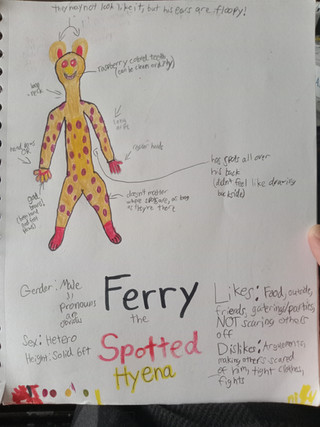 they may not look like it, but his ears are floppy!
raspberry colored teeth
(can be shown or sharp)
long
neck
Long
arms
(hand and feet paws)
has spots all over
his back
(didn't feel like drawing
backside)
doesn't matter
where spots are, as long
as they're there
Gender: Male
Pronouns
are
obvious
Sex: Hetero
Height: Solid 6ft
Ferry
the
Spotted
Hyena
Likes: Food, outside,
friends, gatherings/parties,
NOT scaring others
off
Dislikes: Arguments,
making others scared
of him, tight clothes,
fights